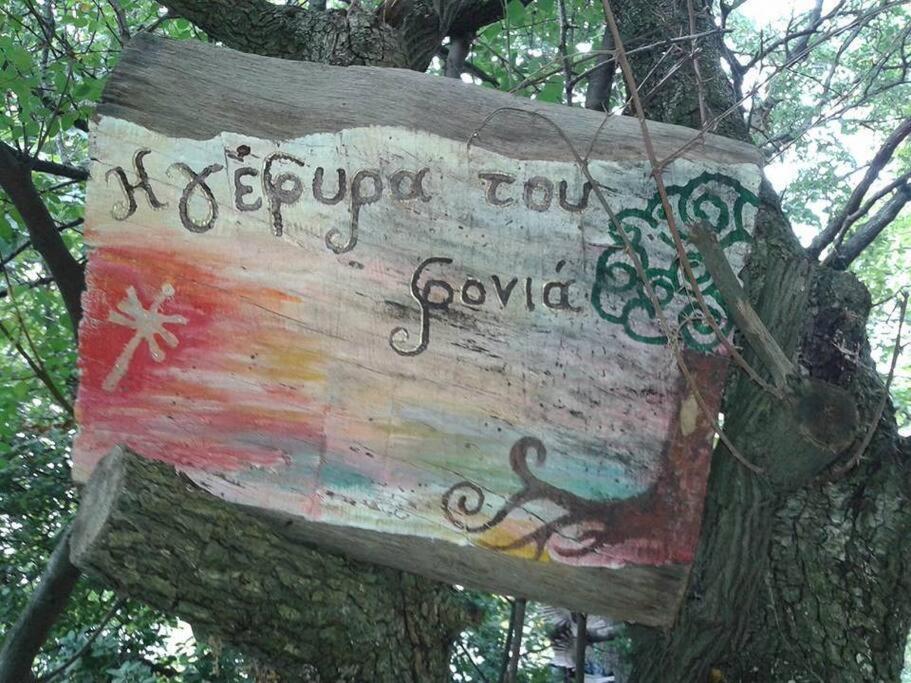 Η γέφυρα του
φονιά